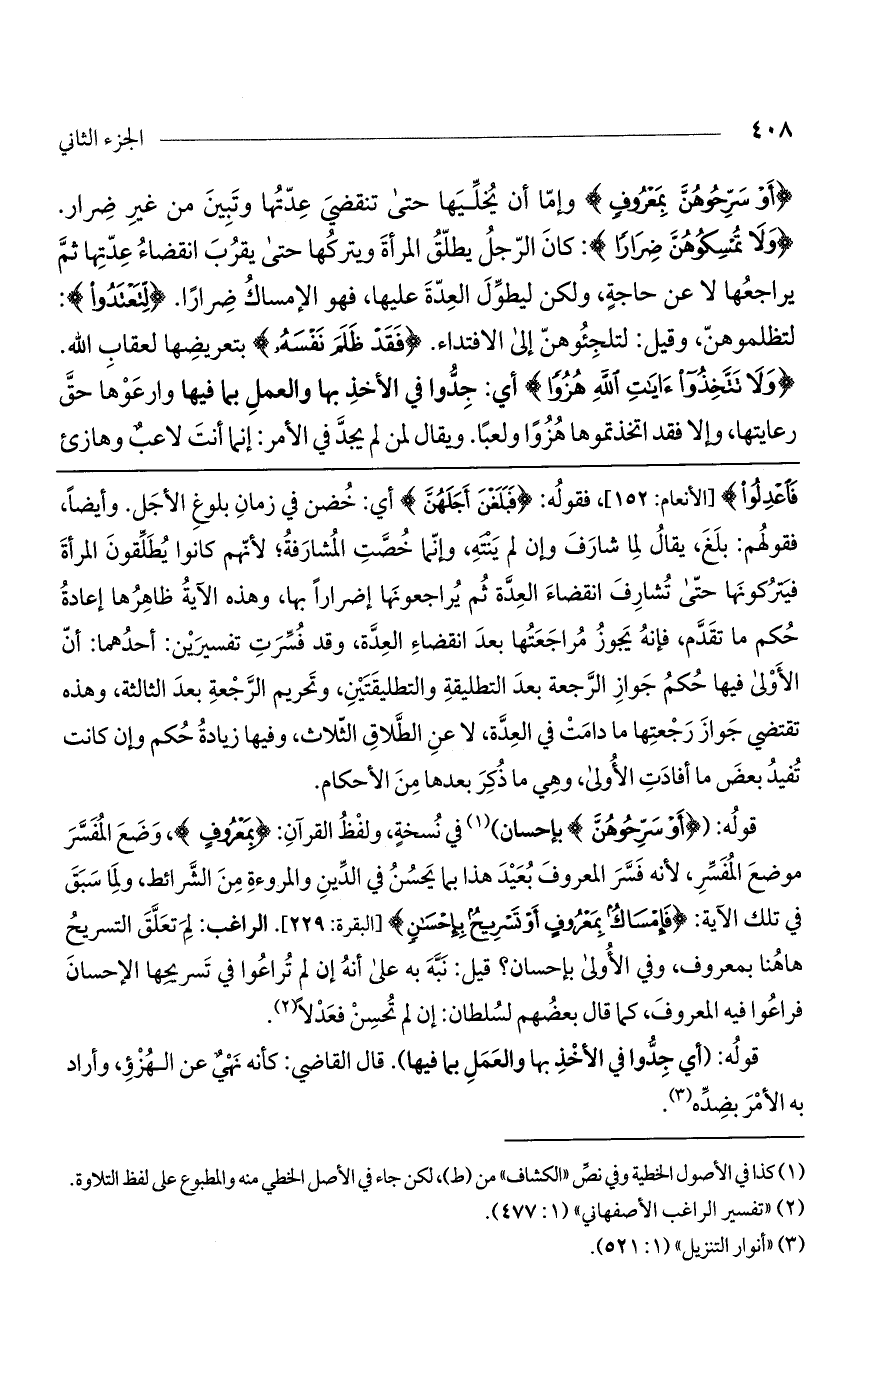 ٤٠٨ الجزء الثاني
﴿أَوْ سَرِّحُوهُنَّ بِمَعْرُوفٍ﴾ وإمّا أن يُخَلِّـيَها حتىٰ تنقضيَ عِدّتُها وتَبِينَ من غيرِ ضِرار.
﴿وَلَا تُمْسِكُوهُنَّ ضِرَارًا﴾: كانَ الرّجلُ يطلّقُ المرأةَ ويتركُها حتىٰ يقرُبَ انقضاءُ عِدّتِها ثمَّ
يراجعُها لا عن حاجةٍ، ولكن ليطوِّلَ العِدّةَ عليها، فهو الإمساكُ ضِرارًا. ﴿لِتَعْتَدُوا﴾:
لتظلموهنّ، وقيل: لتلجِئُوهنّ إلىٰ الافتداء. ﴿فَقَدْ ظَلَمَ نَفْسَهُۥ﴾ بتعريضِها لعقابِ الله.
﴿وَلَا تَتَّخِذُوٓا۟ ءَايَٰتِ ٱللَّهِ هُزُوًا﴾ أي: جِدُّوا في الأخذِ بها والعملِ بما فيها وارعَوْها حقَّ
رعايتِها، وإلا فقد اتخذتموها هُزُوًا ولعبًا. ويقال لمن لم يجدَّ في الأمر: إنما أنتَ لاعبٌ وهازئ
فَٱعْدِلُوا۟﴾ [الأنعام: ١٥٢]، فقولُه: ﴿فَبَلَغْنَ أَجَلَهُنَّ﴾ أي: خُضن في زمانِ بلوغِ الأجَل. وأيضاً،
فقولُهم: بلَغَ، يقالُ لِما شارَفَ وإن لم يَنْتَهِ، وإنّما خُصَّتِ المُشارَفةُ؛ لأنّهم كانوا يُطَلِّقونَ المرأةَ
فيَترُكونَها حتّىٰ تُشارِفَ انقضاءَ العِدَّة ثُم يُراجعونَها إضراراً بها، وهذه الآيةُ ظاهِرُها إعادةُ
حُكم ما تقَدَّم، فإنهُ يَجوزُ مُراجَعَتُها بعدَ انقضاءِ العِدَّة، وقد فُسِّرَتِ تفسيرَيْن: أحدُهما: أنّ
الأوْلىٰ فيها حُكمُ جَوازِ الرَّجعة بعدَ التطليقةِ والتطليقَتَيْنِ، وتحريم الرَّجْعةِ بعدَ الثالثة، وهذه
تقتضي جَوازَ رَجْعتِها ما دامَتْ في العِدَّة، لا عنِ الطَّلاقِ الثّلاث، وفيها زيادةُ حُكم وإن كانت
تُفيدُ بعضَ ما أفادَتِ الأُولىٰ، وهِي ما ذُكِرَ بعدها مِنَ الأحكام.
قولُه: (﴿أَوْ سَرِّحُوهُنَّ﴾ بإحسان)(١) في نُسخةٍ، ولفْظُ القرآنِ: ﴿بِمَعْرُوفٍ﴾، وَضَعَ المُفَسَّرَ
موضعَ المُفَسِّرِ، لأنه فَسَّرَ المعروفَ بُعَيْدَ هذا بما يَحسُنُ في الدِّينِ والمروءةِ مِنَ الشَّرائط، ولِمَا سَبَقَ
في تلك الآية: ﴿فَإِمْسَاكٌۢ بِمَعْرُوفٍ أَوْ تَسْرِيحٌۢ بِإِحْسَٰنٍ﴾ [البقرة: ٢٢٩]. الراغب: لِمَ تعَلَّقَ التسريحُ
هاهُنا بمعروف، وفي الأُولىٰ بإحسان؟ قيل: نَبَّهَ به علىٰ أنهُ إن لم تُراعُوا في تَسريحِها الإحسانَ
فراعُوا فيه المعروفَ، كما قال بعضُهم لسُلطان: إن لم تُحسِنْ فعَدْلاً(٢).
قولُه: (أي جِدُّوا في الأخْذِ بها والعَمَلِ بما فيها). قال القاضي: كأنه نَهْيٌ عن الـهُزْؤِ، وأراد
به الأمْرَ بضِدِّه(٣).
(١) كذا في الأصول الخطية وفي نصِّ «الكشاف» من (ط)، لكن جاء في الأصل الخطي منه والمطبوع على لفظ التلاوة.
(٢) «تفسير الراغب الأصفهاني» (١: ٤٧٧).
(٣) «أنوار التنزيل» (١: ٥٢١).